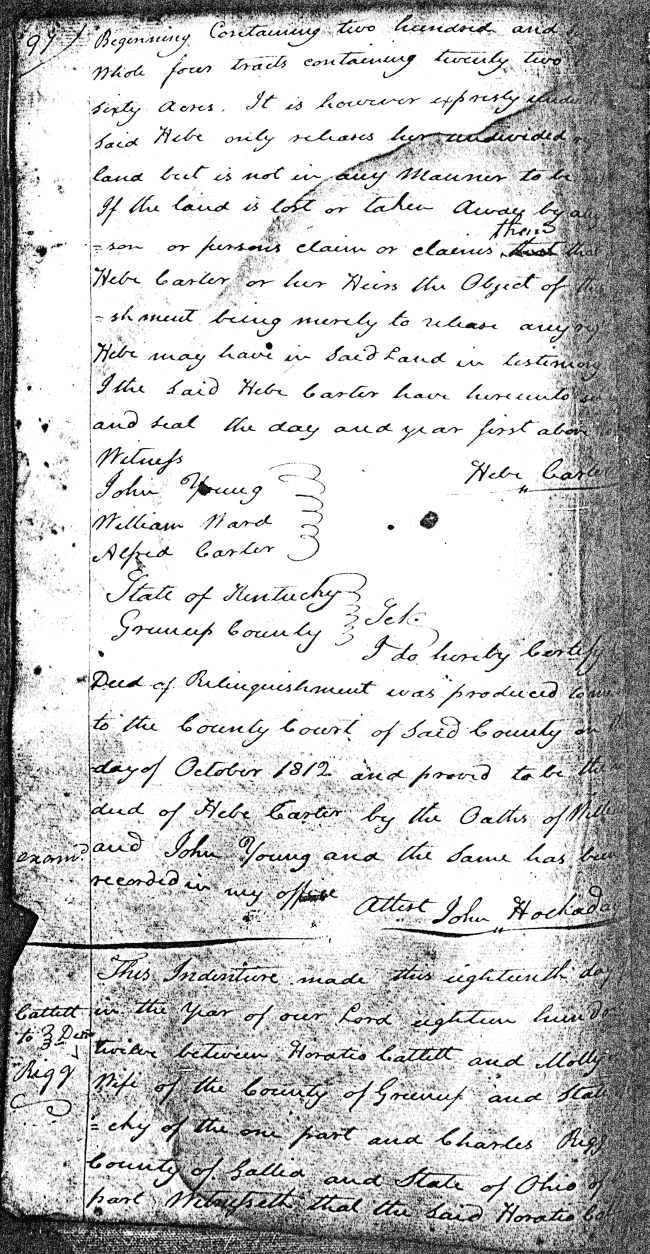 97
Beginning Containing two hundred and
whole four tracts containing twenty two
sixty Acres. It is however expresly
Said Hebe only releases her undivided
land but is not in any Manner to be
If the land is lost or taken Away by
=son or persons claim or claims theirs that
Hebe Carter or her Heirs the Object of
=shment being merely to release any
Hebe may have in Said Land in testimony
I the Said Hebe Carter have hereunto
and seal the day and year first above
Witness
Hebe Carter
John Young
William Ward
Alfred Carter
State of Kentucky
Greenup County } Sct.
I do hereby Certify
Deed of Relinquishment was produced to me
to the County Court of Said County on
day of October 1812 and proved to be the
deed of Hebe Carter by the Oaths of
examd and John Young and the Same has been
recorded in my office
Attest John Hockaday
This Indenture made this eighteenth day
Catlett
to } Deed
Rigg
in the Year of our Lord eighteen hund
twelve between Horatio Catlett and Molly
Wife of the County of Greenup and State
=cky of the one part and Charles Rigg
County of Gallia and State of Ohio of
part Witnesseth that the Said Horatio